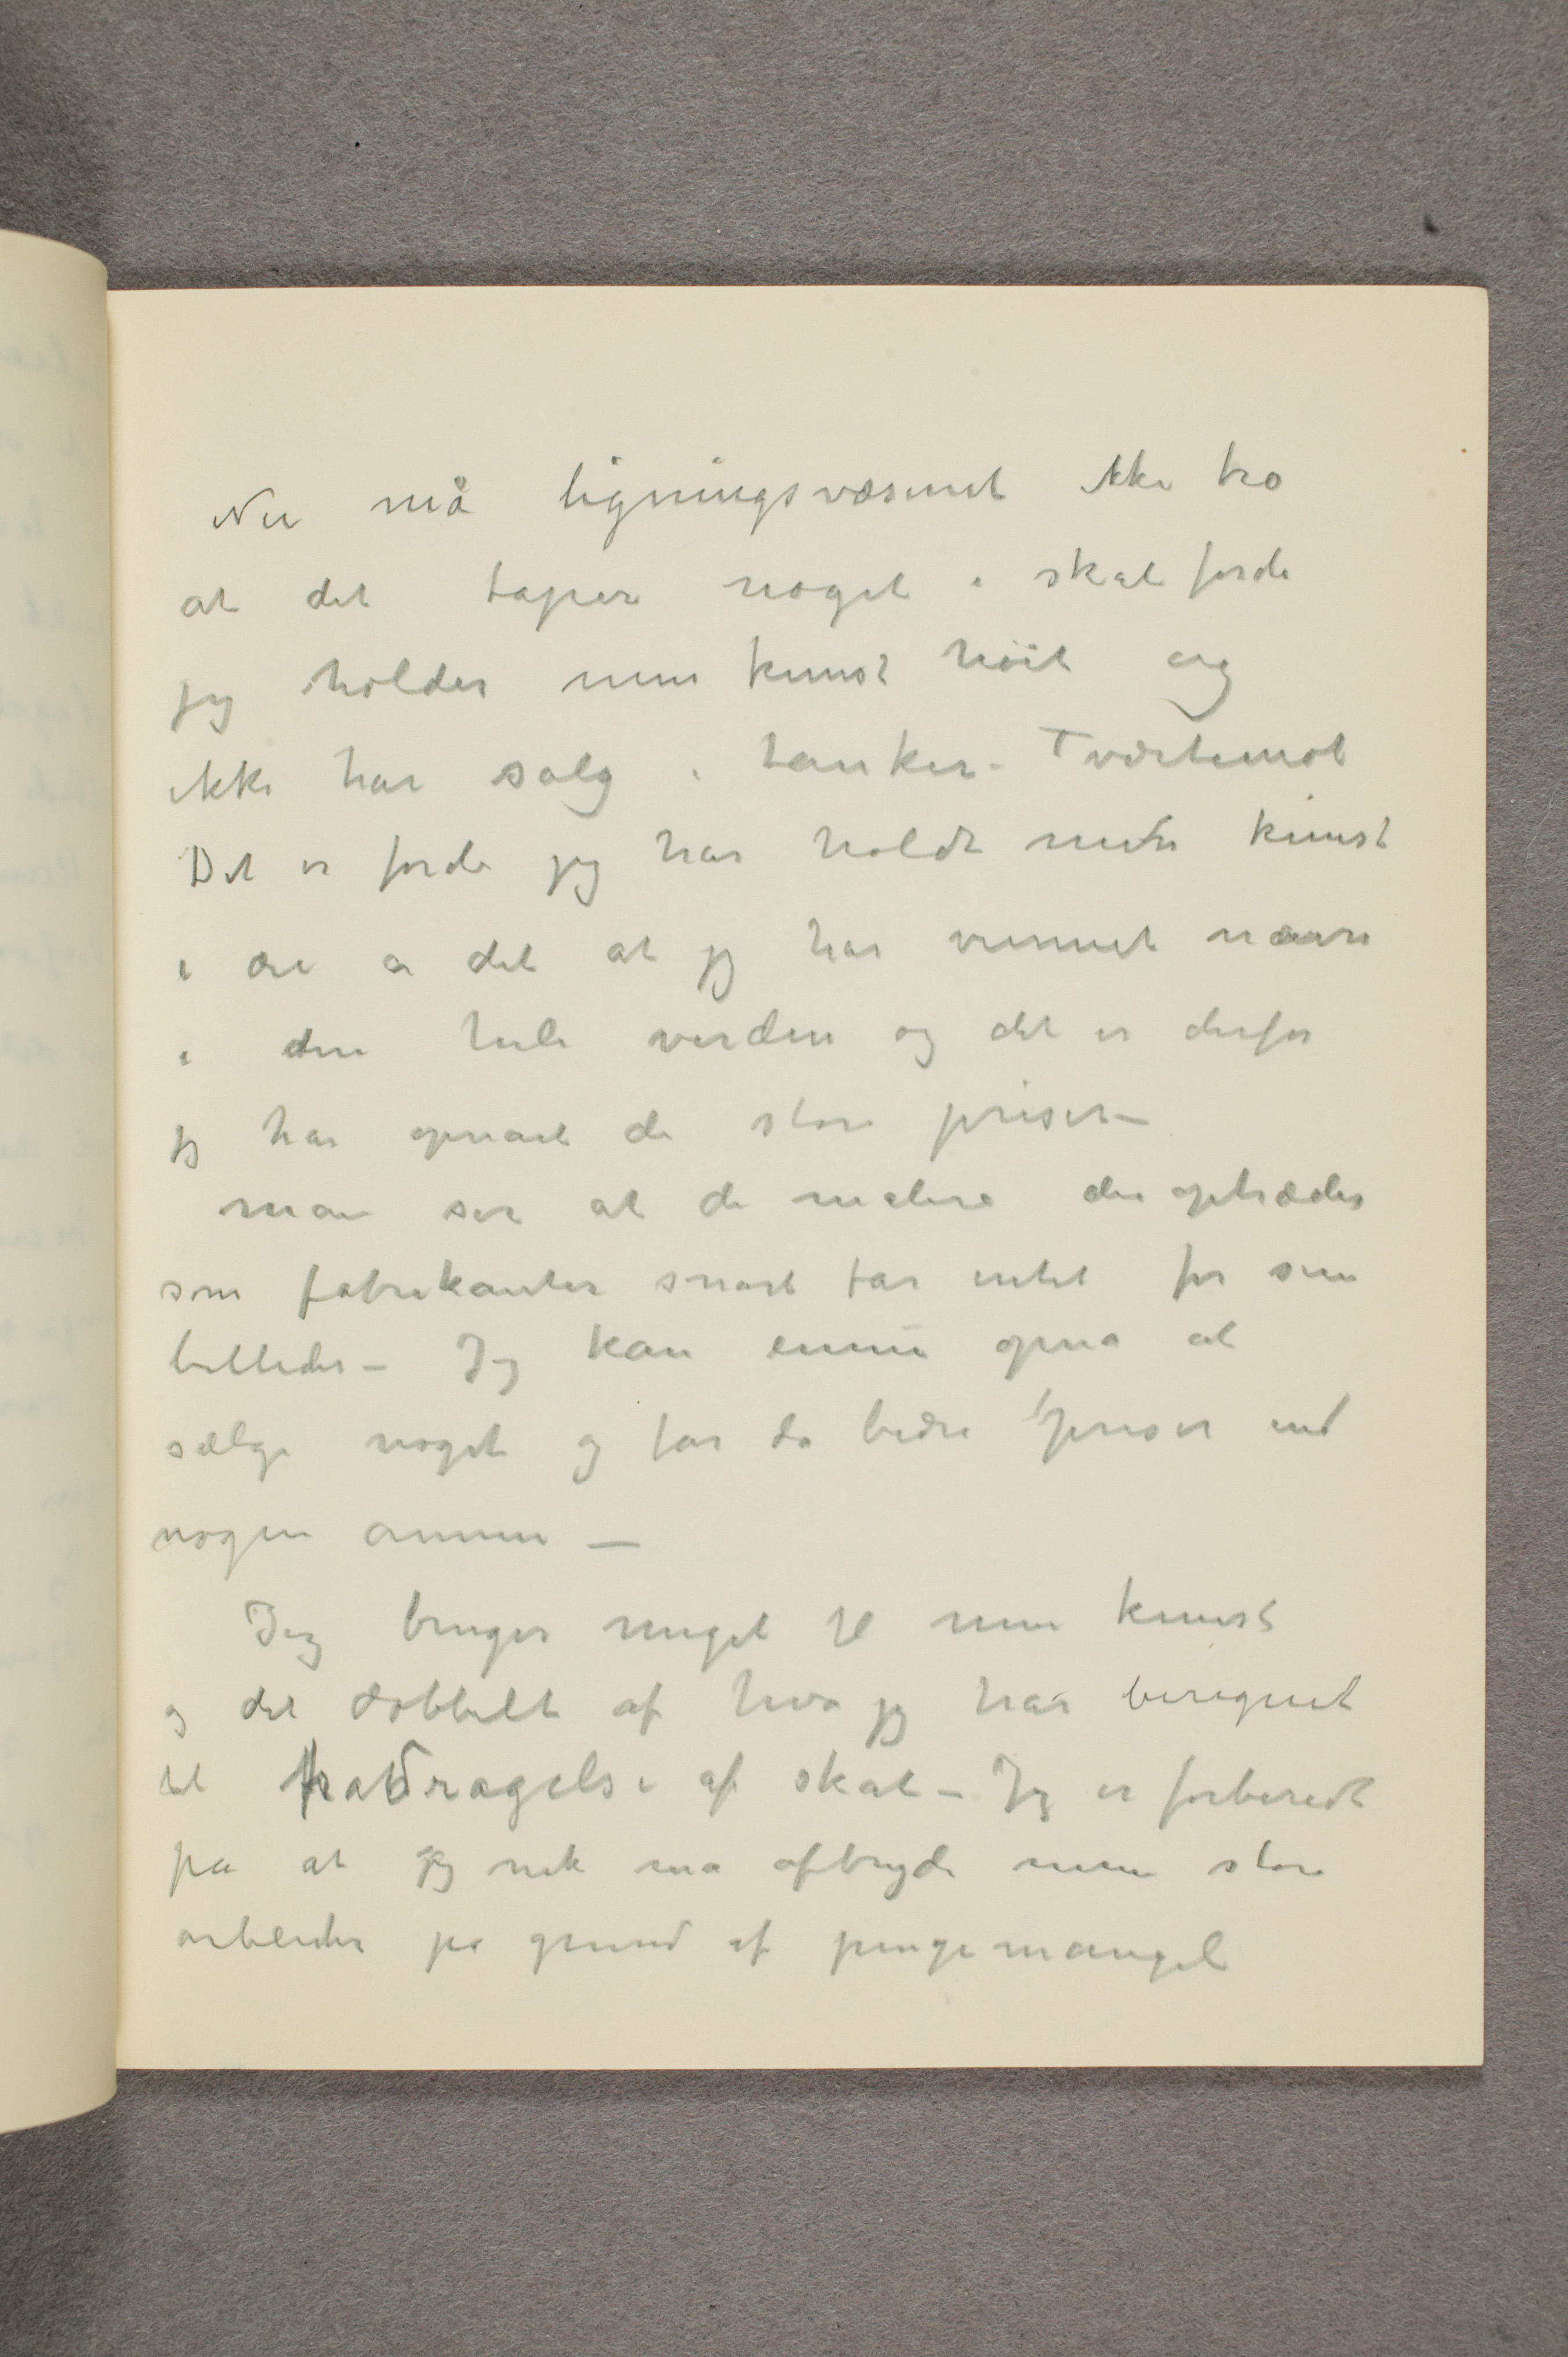 Nu må ligningsvæsenet ikke tro
at det taper noget i skat fordi
jeg holder min kunst høit og
ikke har salg i tanker – Tværtemot
Det er fordi jeg har holdt min kunst
i ære a det at jeg har vunnet navn
i den hele verden og det er derfor
jeg har opnaaet de store priser –
man ser at de malere der optræder
som fabrikanter snart får intet for sine
billeder – Jeg kan ennu opna at
sælge noget og får da bedre priser end
nogen annen –
Jeg bruger meget til min kunst
og det dobbelt af hva jeg har beregnet
til fradragelse af skat – Jeg er forberedt
på at jeg nok må afbryde mine store
arbeider på grund af pengemangel